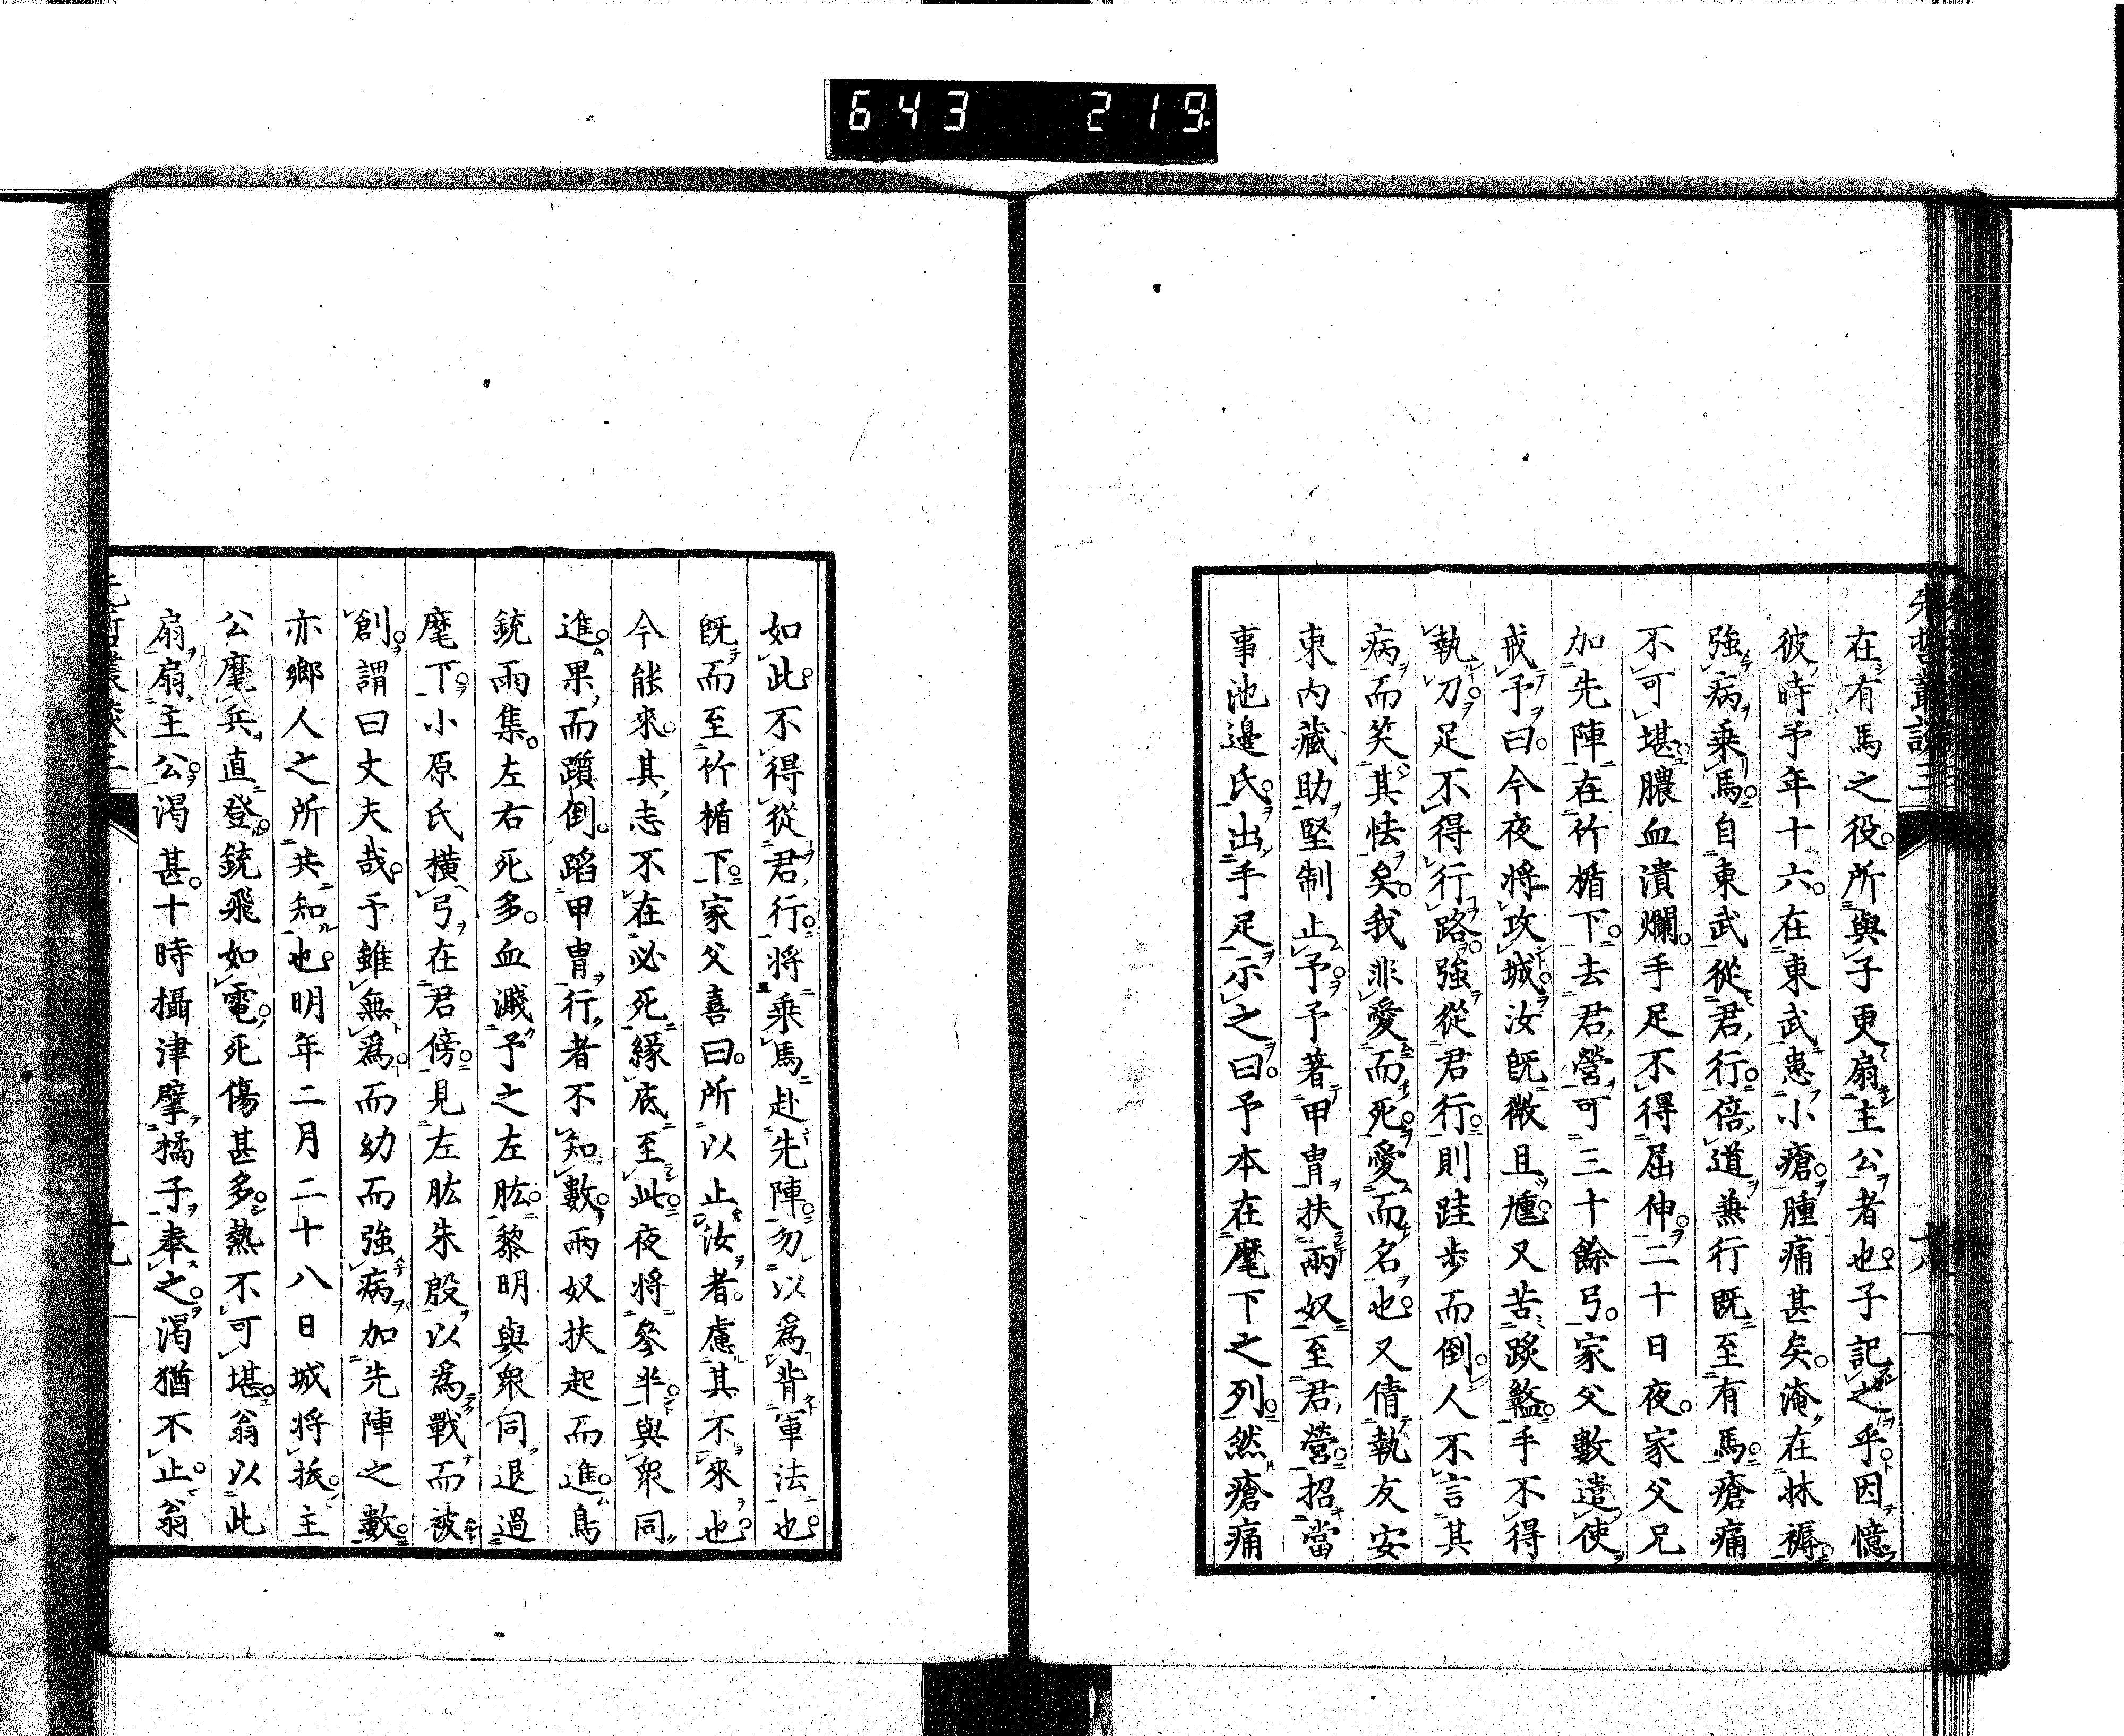 643 219
先哲叢談三
十八
在有馬之役。所與子更扇主公者也。子記之乎。因憶
彼時予年十六。在東武患小瘡。腫痛甚矣。淹在牀褥。
強病乘馬。自東武從君行。倍道兼行既至有馬。瘡痛
不可堪。膿血潰爛。手足不得屈伸。二十日夜。家父兄
加先陣在竹楯下。去君營可三十餘弓。家父數遣使
戒予曰。今夜將攻城。汝既微且尰。又苦踒盭。手不得
執刀。足不得行路。強從君行。則跬步而倒。人不言其
病而笑其怯矣。我非愛而死。愛而名也。又倩執友安
東内藏助堅制止予。予著甲冑。扶兩奴至君營。招當
事池邊氏。出手足示之曰。予本在麾下之列。然瘡痛
如此。不得從君行。將乘馬赴先陣。勿以爲背軍法也。
既而至竹楯下。家父喜曰。所以止汝者。慮其不來也。
今能來。其志不在必死。緣底至此。夜將參半。與衆同
進。果而躓倒。蹈甲冑行者不知數。兩奴扶起而進。鳥
銃雨集。左右死多。血濺予之左肱。黎明與衆同退。過
麾下。小原氏横弓在君傍。見左肱朱殷。以爲戰而被
創。謂曰丈夫哉。予雖無爲。而幼而強病加先陣之數。
亦鄉人之所共知也。明年二月二十八日城將拔。主
公麾兵直登。銃飛如電。死傷甚多。熱不可堪。翁以此
扇扇主公。渴甚。十時攝津擘橘子奉之。渴猶不止。翁
十九